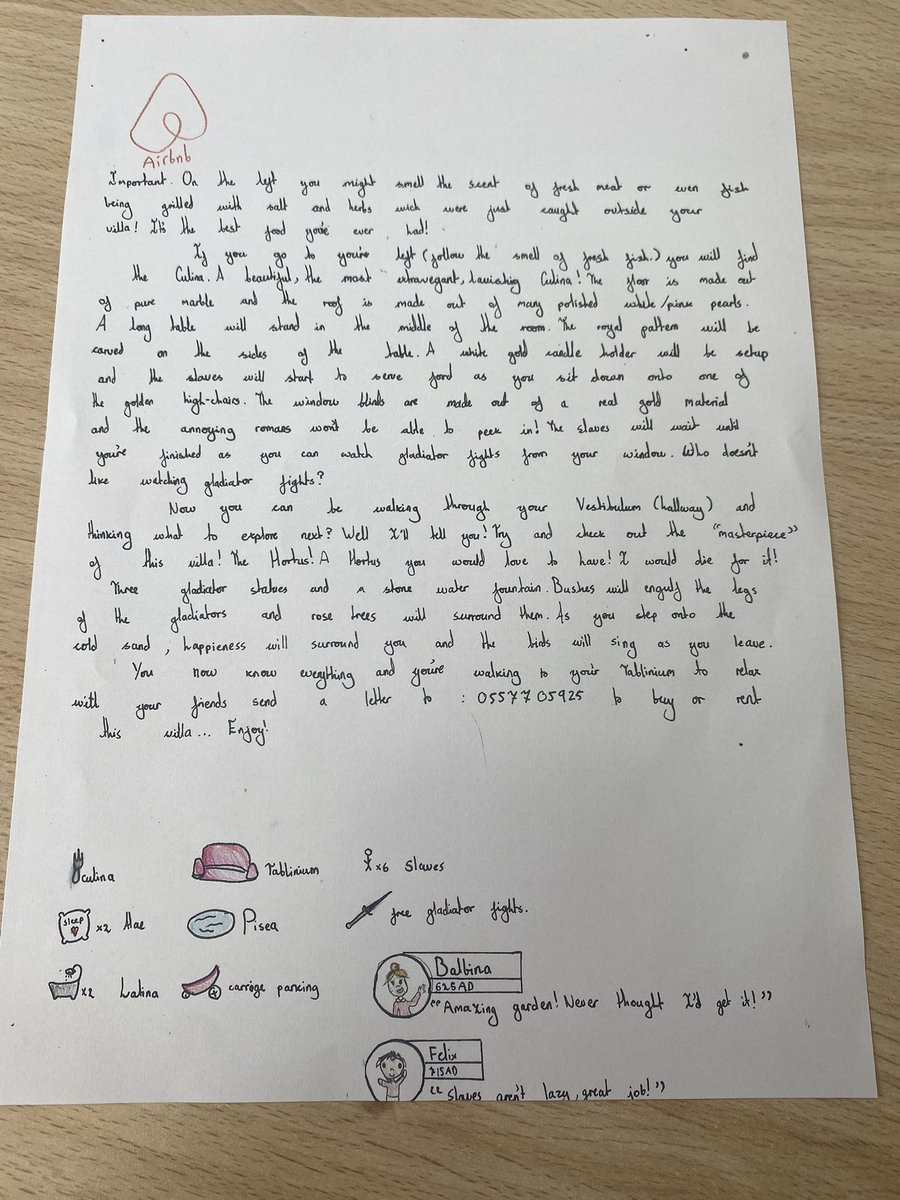 Airbnb
Important. On the left you might smell the scent of fresh meat or even fish
being grilled with salt and herbs wich were just caught outside your
villa! It's the best food you've ever had!
If you go to you're left (follow the smell of fresh fish.) you will find
the Culina. A beautiful, the most extravegant, lavishing Culina! The floor is made out
of pure marble and the roof is made out of many polished white/pink pearls.
A long table will stand in the middle of the room. The royal pattern will be
carved on the sides of the table. A white gold candle holder will be setup
and the slaves will start to serve food as you sit down onto one of
the golden high-chairs. The window blinds are made out of a real gold material
and the annoying romans won't be able to peek in! The slaves will wait until
you're finished as you can watch gladiator fights from your window. Who doesn't
like watching gladiator fights?
Now you can be walking through your Vestibulum (hallway) and
thinking what to explore next? Well I'll tell you! Try and check out the "masterpiece"
of this villa! The Hortus! A Hortus you would love to have! I would die for it!
Three gladiator statues and a stone water fountain. Bushes will engulf the legs
of the gladiators and rose trees will surround them. As you step onto the
cold sand, happieness will surround you and the birds will sing as you leave.
You now know everything and you're walking to your Tablinium to relax
with your friends send a letter to : 0557705925 to buy or rent
this villa... Enjoy!
culina
Tablinium
x6 Slaves
sleep
x2 Alae
Pisea
free gladiator fights.
x2 Latina
carrige parcing
Balbina
625AD
"Amazing garden! Never thought I'd get it!"
Felix
715AD
"Slaves aren't lazy, great job!"